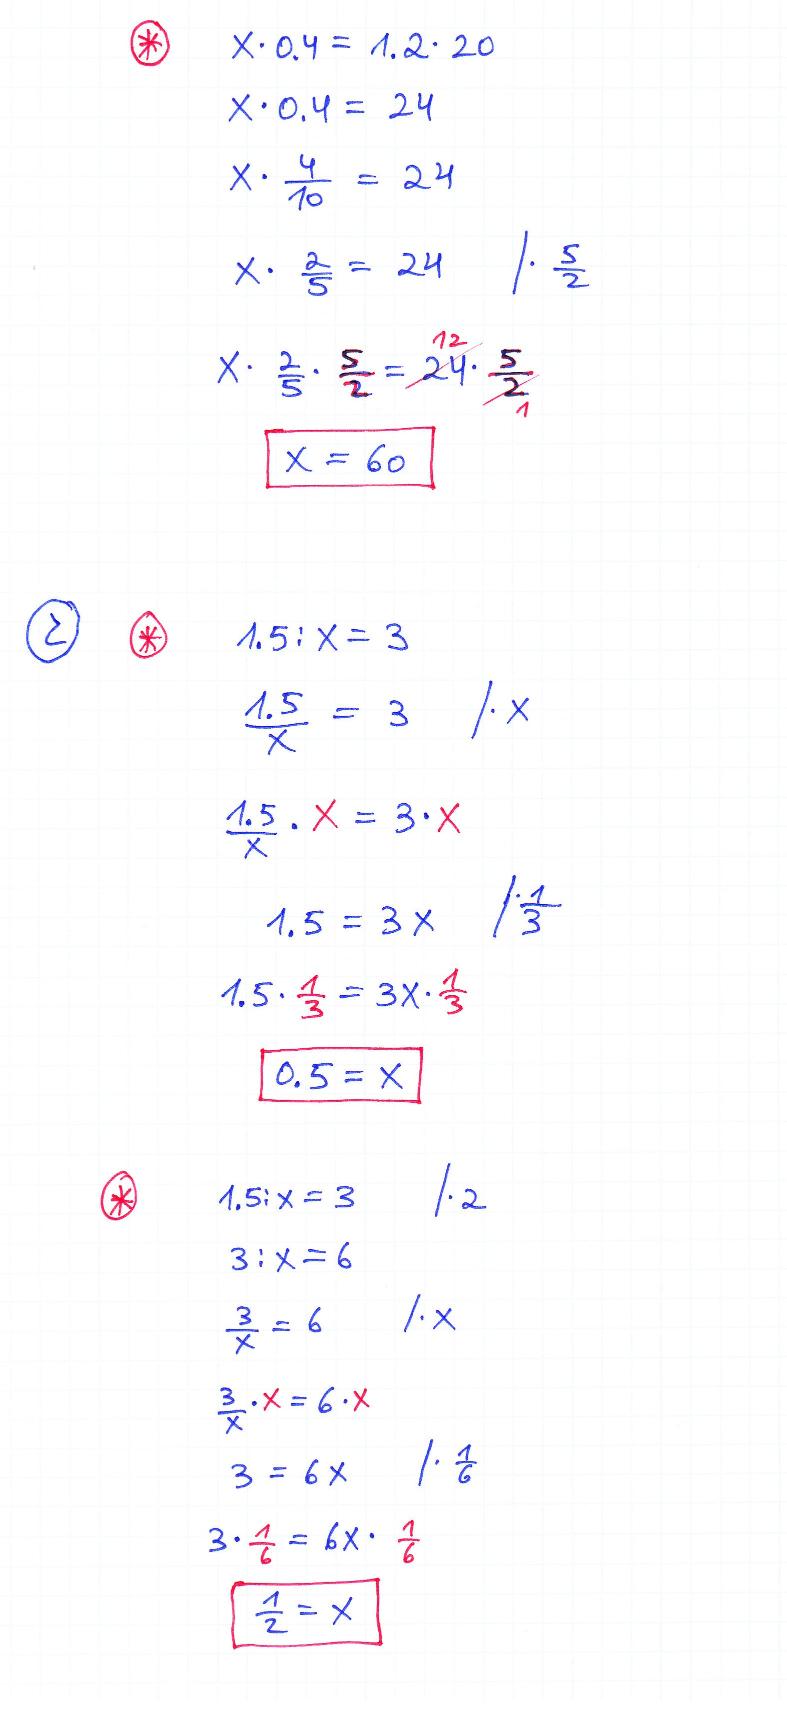 * x · 0.4 = 1.2 · 20
x · 0.4 = 24
x · 4/10 = 24
x · 2/5 = 24 /· 5/2
x · 2/5 · 5/2 = 24 12 · 5/2 1
x = 60
2 * 1.5 : x = 3
1.5/x = 3 /· x
1.5/x · x = 3 · x
1.5 = 3x /· 1/3
1.5 · 1/3 = 3x · 1/3
0.5 = x
* 1.5 : x = 3 /· 2
3 : x = 6
3/x = 6 /· x
3/x · x = 6 · x
3 = 6x /· 1/6
3 · 1/6 = 6x · 1/6
1/2 = x